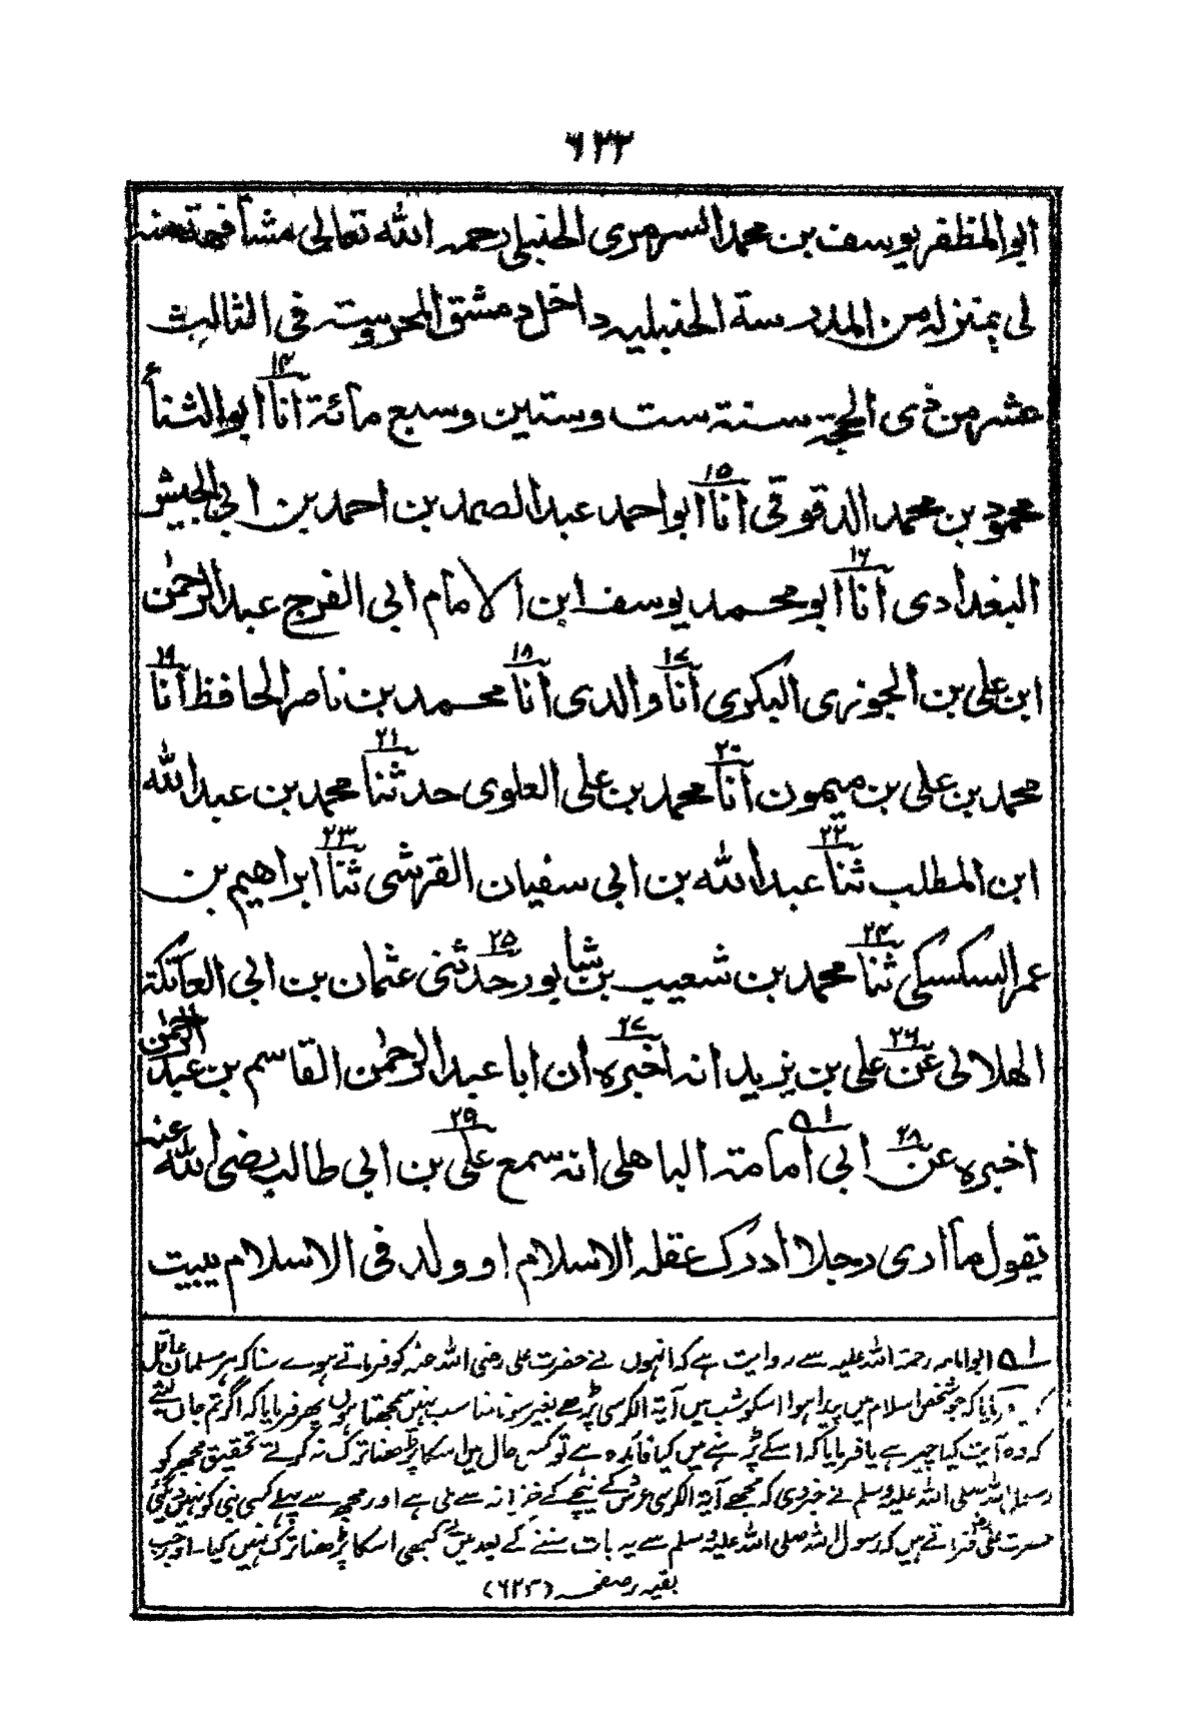 ۶۲۲
ابوالمظفر يوسف بن محمد السرمرى الحنبلى رحمه الله تعالى مشافهة منه
لى بمنزله من المدرسة الحنبليه داخل دمشق المحروسته فى الثالث
عشر من ذى الحجة سنة ست وستين وسبع مائة انا ۱۴ ابو الثناء
محمود بن محمد الدقوقى انا ۱۵ ابو احمد عبد الصمد بن احمد بن ابى الجيش
البغدادى انا ۱۶ ابو محمد يوسف ابن الامام ابى الفرج عبد الرحمٰن
ابن على بن الجوزى البكرى انا ۱۷ والدى انا ۱۸ محمد بن ناصر الحافظ انا ۱۹
محمد بن على بن ميمون انا ۲۰ محمد بن على العلوى حدثنا ۲۱ محمد بن عبد الله
ابن المطلب ثنا ۲۲ عبد الله بن ابى سفيان القرشى ثنا ۲۳ ابراهيم بن
عمر السكسكى ثنا ۲۴ محمد بن شعيب بن شابور حدثنى ۲۵ عثمان بن ابى العاتكة
الهلالى عن ۲۶ على بن يزيد انه اخبره ۲۷ ان ابا عبد الرحمٰن القاسم بن عبد الرحمٰن
اخبره عن ۲۸ ابى امامته الباهلى انه سمع على ۲۹ بن ابى طالب رضى الله عنه
يقول ما ارى رجلا ادرك عقله الاسلام او ولد فى الاسلام يبيت
۱ ابوامامہ رحمۃ اللہ علیہ سے روایت ہے کہ انہوں نے حضرت علی رضی اللہ عنہ کو فرماتے ہوے سنا کہ ہر مسلمان عاقل
کہ جو شخص اسلام میں پیدا ہوا اسکو شب میں آیۃ الکرسی پڑھے بغیر سونا مناسب نہیں سمجھتا ہوں پھر فرمایا کہ اگر تم جان لیتے
کہ وہ آیت کیا چیز ہے یا فرمایا کہ اسکے پڑہنے میں کیا فائدہ ہے تو کسی حال میں اسکا پڑھنا ترک نہ کرتے تحقیق مجھ کو
رسول اللہ صلی اللہ علیہ وسلم نے خبر دی کہ مجھے آیۃ الکرسی عرش کے نیچے کے خزانہ سے ملی ہے اور مجھ سے پہلے کسی نبی کو نہیں دی گئی
حضرت علی فرماتے ہیں کہ رسول اللہ صلی اللہ علیہ وسلم سے یہ بات سننے کے بعد میں نے کبھی اسکا پڑھنا ترک نہیں کیا۔ اور جب
بقیہ بر صفحہ (۶۲۳)